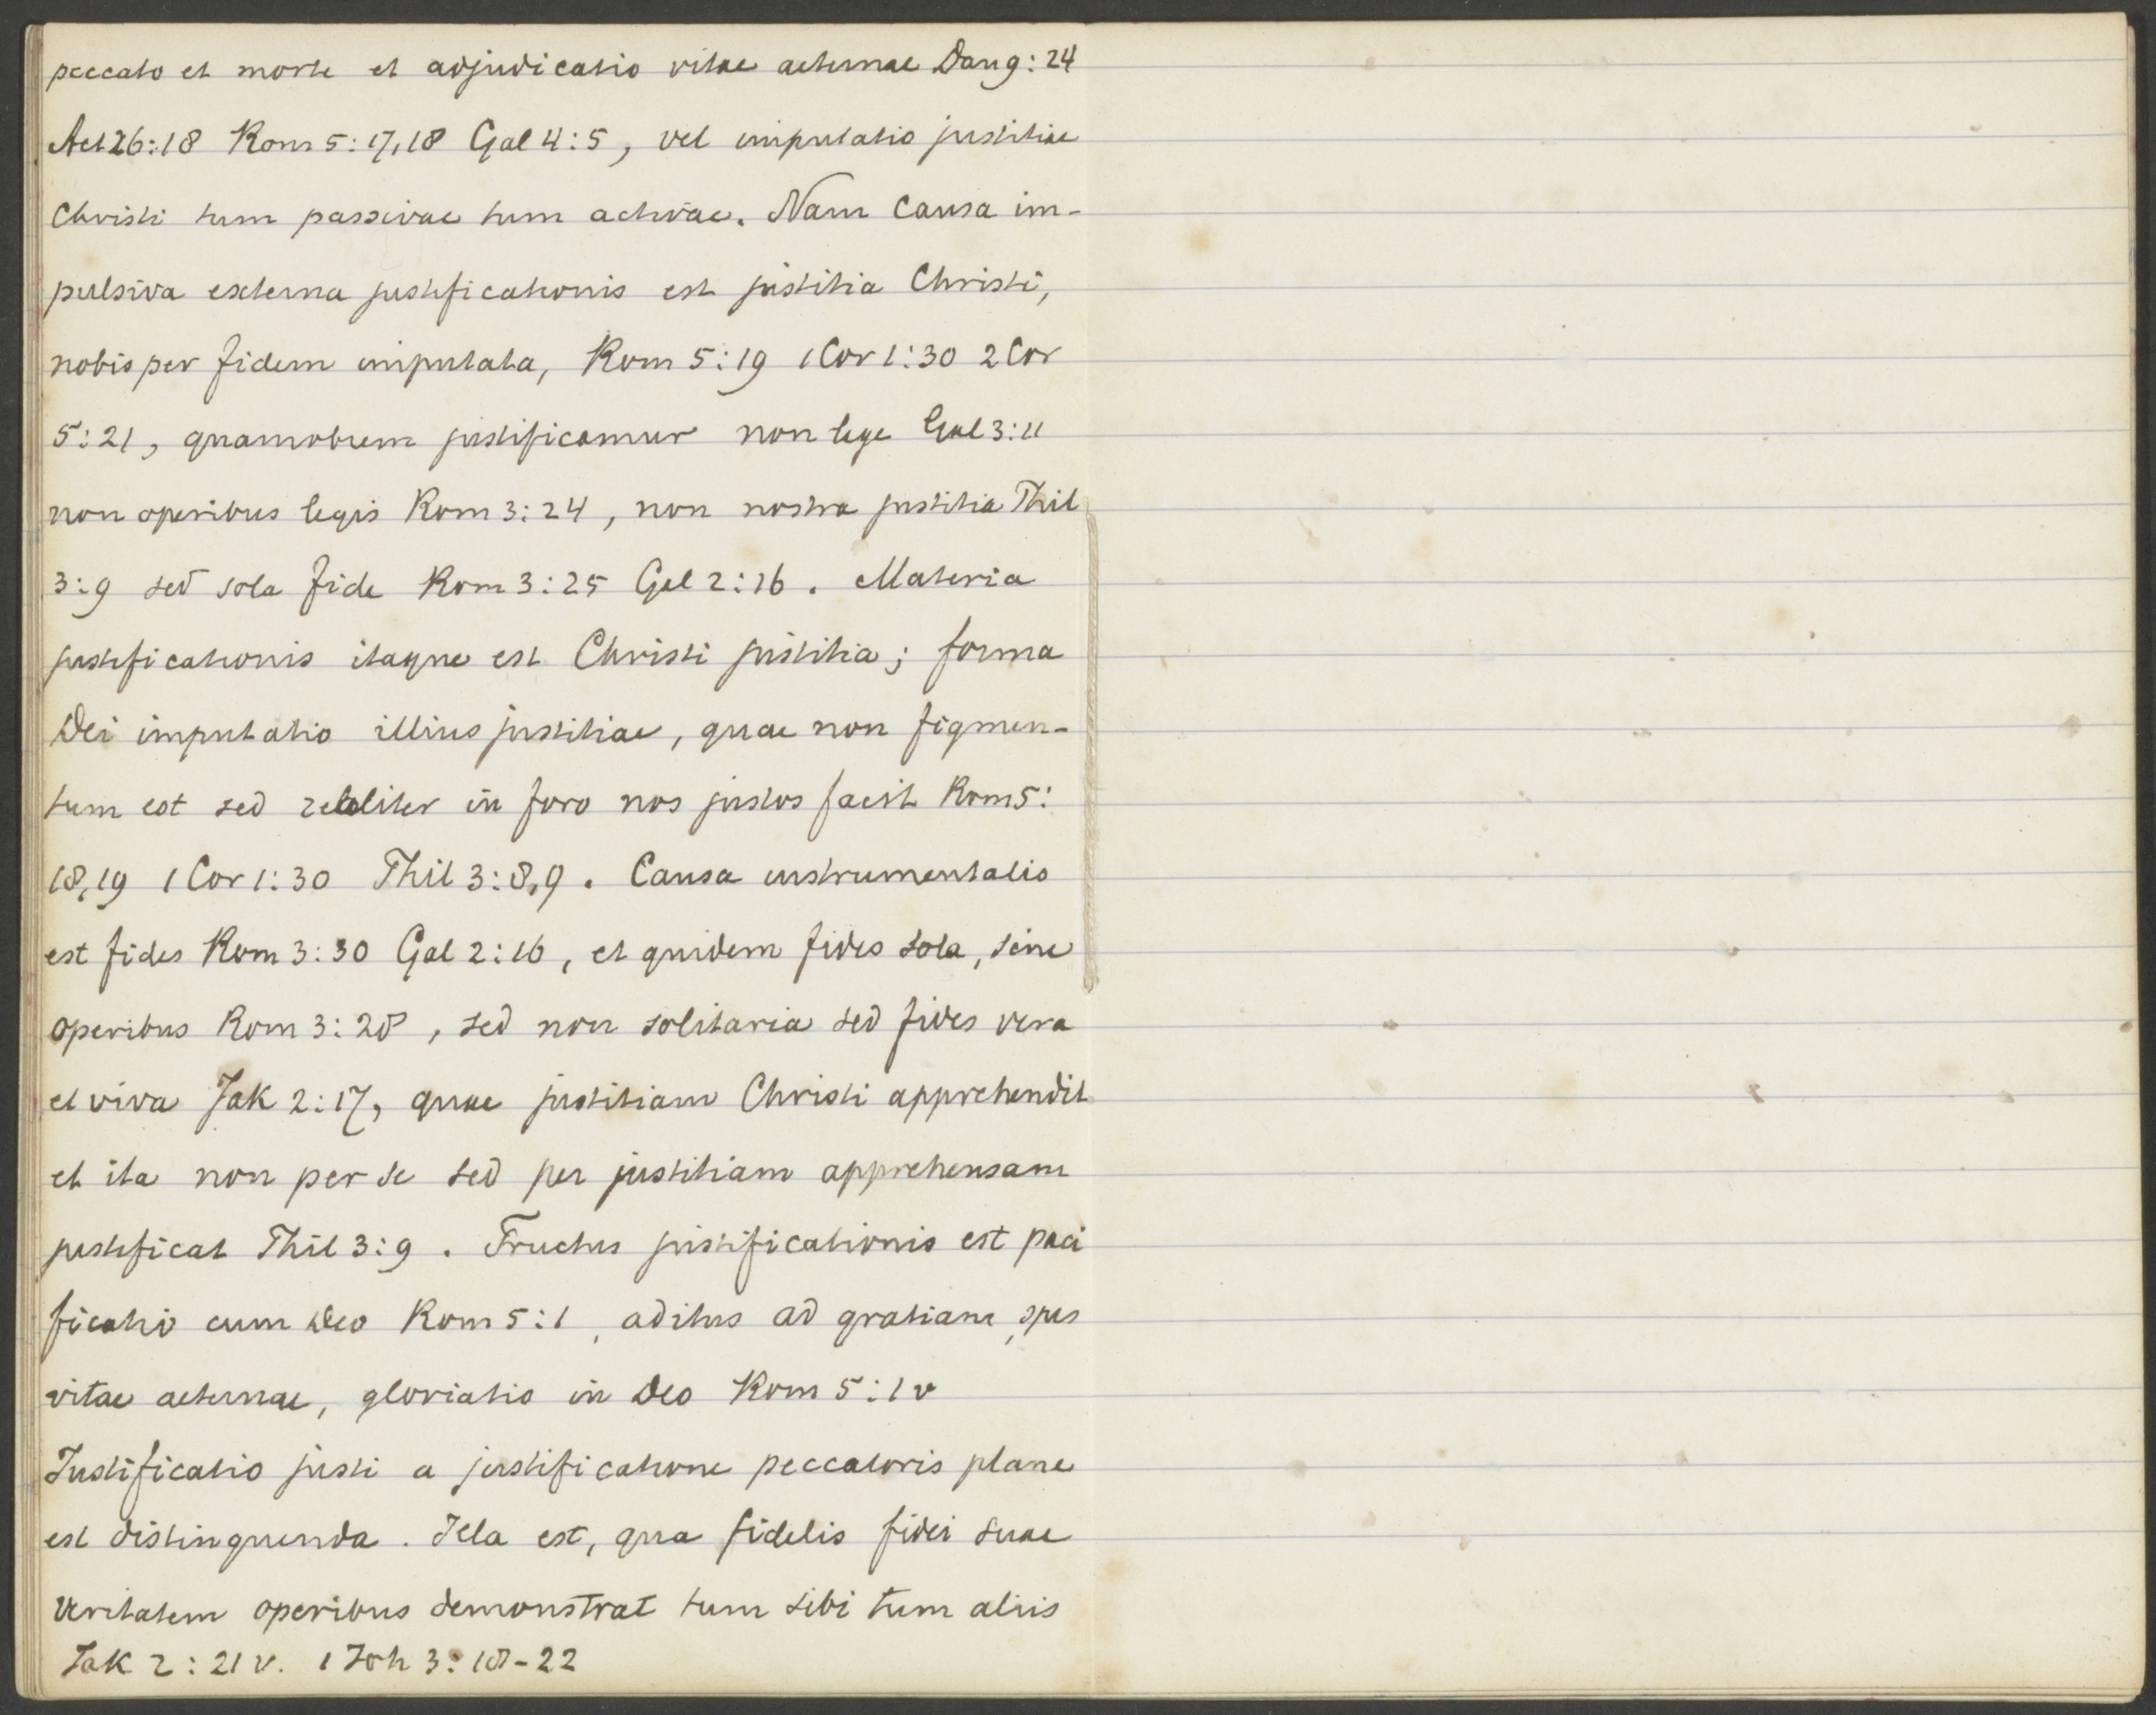 peccato et morte et adjudicatio vitae aeternae Dan 9:24
Act 26:18 Rom 5:17,18 Gal 4:5, vel imputatio justitiae
Christi tum passivae tum activae. Nam causa im-
pulsiva externa justificationis est justitia Christi,
nobis per fidem imputata, Rom 5:19 1 Cor 1:30 2 Cor
5:21, quamobrem justificamur non lege Gal 3:11
non operibus legis Rom 3:24, non nostra justitia Phil
3:9 sed sola fide Rom 3:25 Gal 2:16. Materia
justificationis itaque est Christi justitia; forma
Dei imputatio illius justitiae, quae non figmen-
tum est sed realiter in foro nos justos facit Rom 5:
18,19 1 Cor 1:30 Phil 3:8,9. Causa instrumentalis
est fides Rom 3:30 Gal 2:16, et quidem fides sola, sine
operibus Rom 3:28, sed non solitaria sed fides vera
et viva Jak 2:17, quae justitiam Christi apprehendit
et ita non per se sed per justitiam apprehensam
justificat Phil 3:9. Fructus justificationis est paci
ficatio cum Deo Rom 5:1, aditus ad gratiam, spes
vitae aeternae, gloriatio in Deo Rom 5:1 v
Justificatio justi a justificatione peccatoris plane
est distinguenda. Illa est, qua fidelis fidei suae
veritatem operibus demonstrat tum sibi tum aliis
Jak 2:21 v. 1 Joh 3:18-22